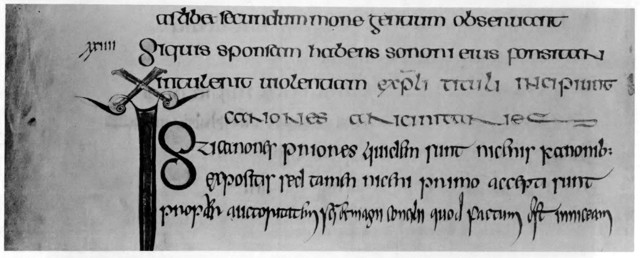 secundum more gentium observant
xxiiii Siquis sponsam habens sorori eius forsitan
intulerit violentiam expli tituli incipiunt
canones anciritani
Isti canones priores quidem sunt nicenis kanonib:
expositis sed tamen niceni primo accepti sunt
propter auctoritatem sci et magni concilii quod factum est in niceam